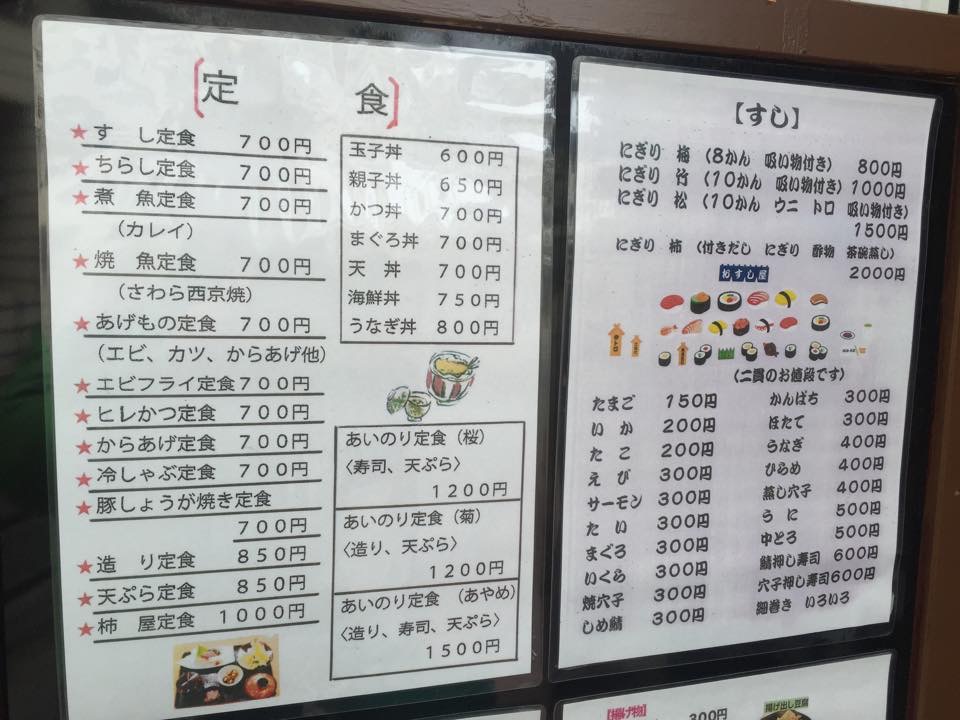 ［定食］
★すし定食 700円
★ちらし定食 700円
★煮魚定食 700円
（カレイ）
★焼魚定食 700円
（さわら西京焼）
★あげもの定食 700円
（エビ、カツ、からあげ他）
★エビフライ定食 700円
★ヒレかつ定食 700円
★からあげ定食 700円
★冷しゃぶ定食 700円
★豚しょうが焼き定食
700円
★造り定食 850円
★天ぷら定食 850円
★柿屋定食 1000円
玉子丼 600円
親子丼 650円
かつ丼 700円
まぐろ丼 700円
天丼 700円
海鮮丼 750円
うなぎ丼 800円
あいのり定食（桜）
〈寿司、天ぷら〉
1200円
あいのり定食（菊）
〈造り、天ぷら〉
1200円
あいのり定食（あやめ）
〈造り、寿司、天ぷら〉
1500円
【すし】
にぎり 梅（8かん 吸い物付き） 800円
にぎり 竹（10かん 吸い物付き） 1000円
にぎり 松（10かん ウニ トロ 吸い物付き）
1500円
にぎり 柿（付きだし にぎり 酢物 茶碗蒸し）
2000円
おすし屋
（二貫のお値段です）
たまご 150円
いか 200円
たこ 200円
えび 300円
サーモン 300円
たい 300円
まぐろ 300円
いくら 300円
焼穴子 300円
しめ鯖 300円
かんぱち 300円
ほたて 300円
うなぎ 400円
ひらめ 400円
蒸し穴子 400円
うに 500円
中とろ 500円
鯖押し寿司 600円
穴子押し寿司 600円
細巻き いろいろ
【揚げ物】
300円
揚げ出し豆腐